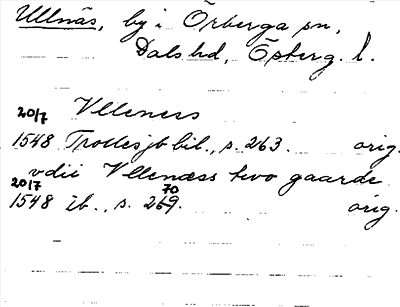 Ullnäs, by i Örberga sn,
Dals hd, Östergl.
20/7 Vlleness
1548 Trollesjb bil., s. 263. orig.
vdii Vllenæss two gaarde
20/7 70
1548 ib., s. 269. orig.